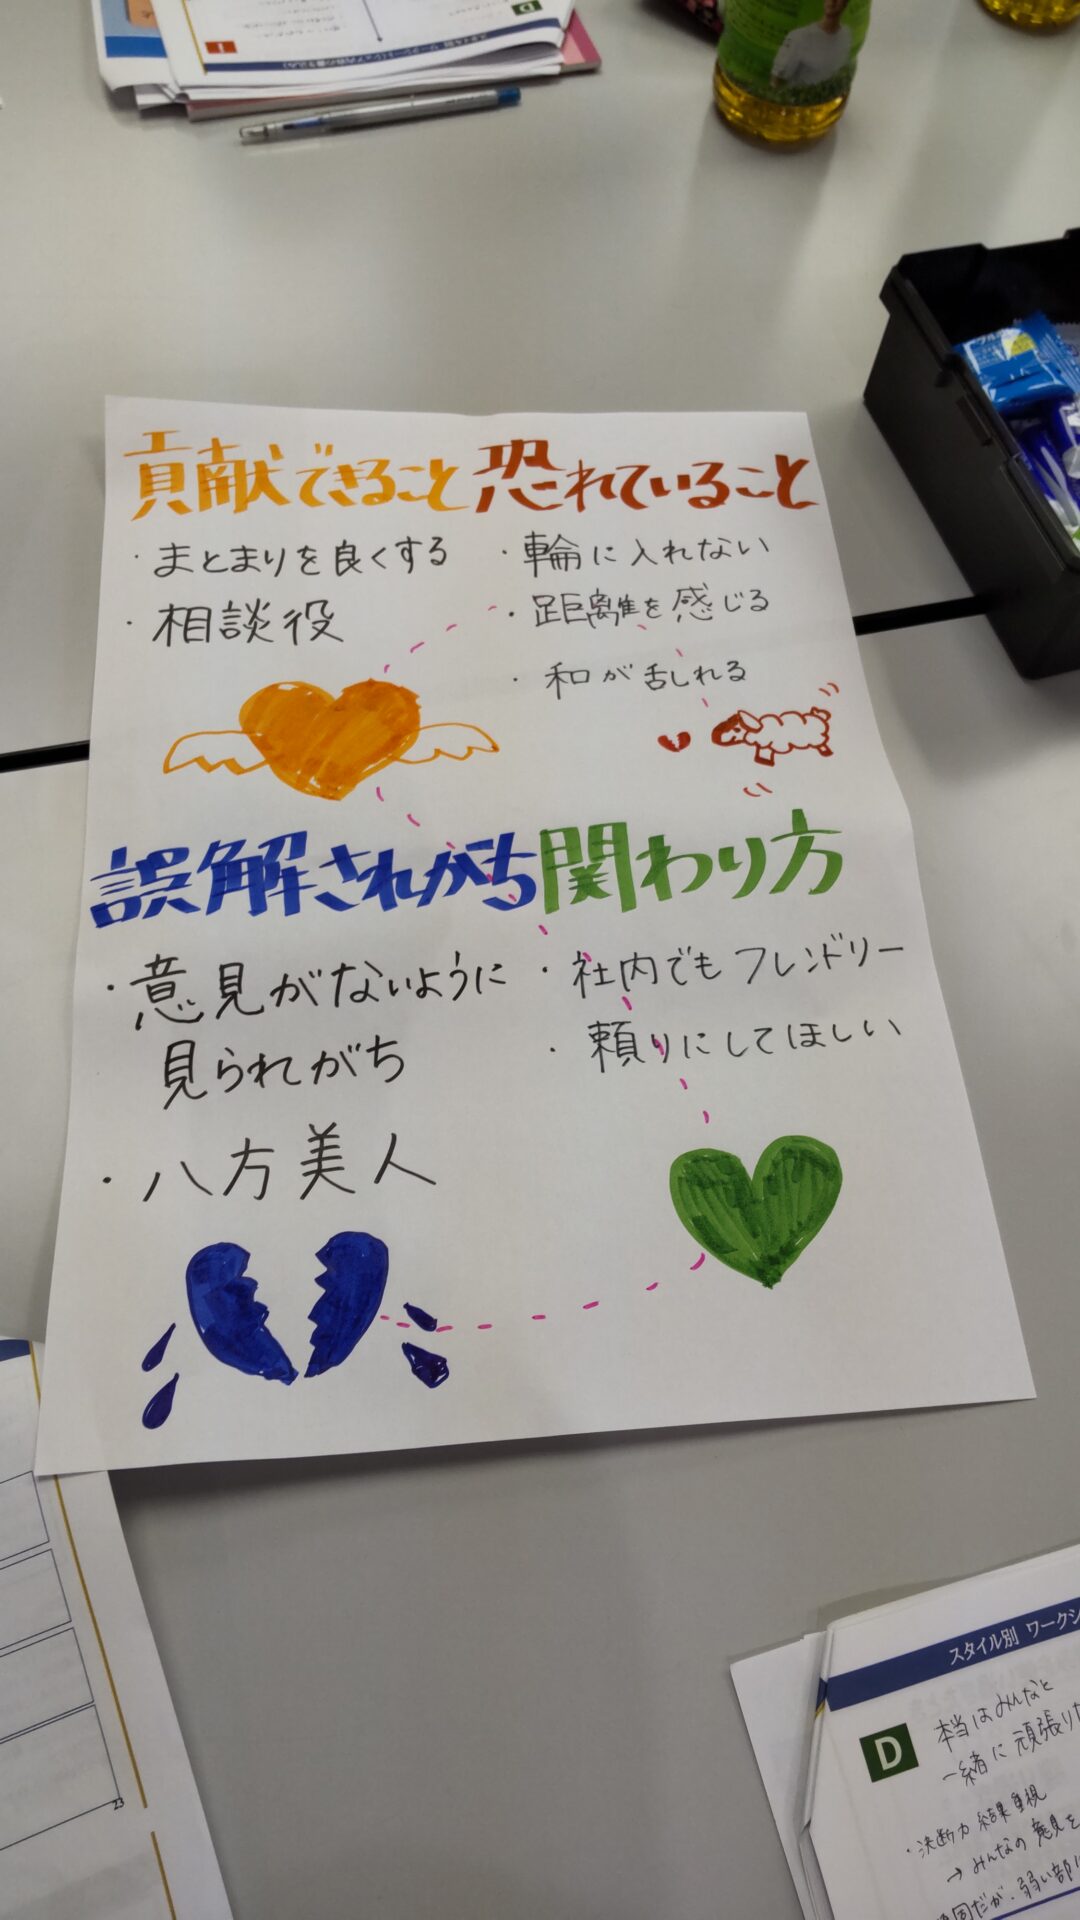 貢献できること
・まとまりを良くする
・相談役
恐れていること
・輪に入れない
・距離を感じる
・和が乱れる
誤解されがち
・意見がないように
見られがち
・八方美人
関わり方
・社内でもフレンドリー
・頼りにしてほしい
D
I
23
スタイル別 ワークシ
D
本当はみんなと
一緒に頑張りた
・決断力 結果重視
→みんなの意見を